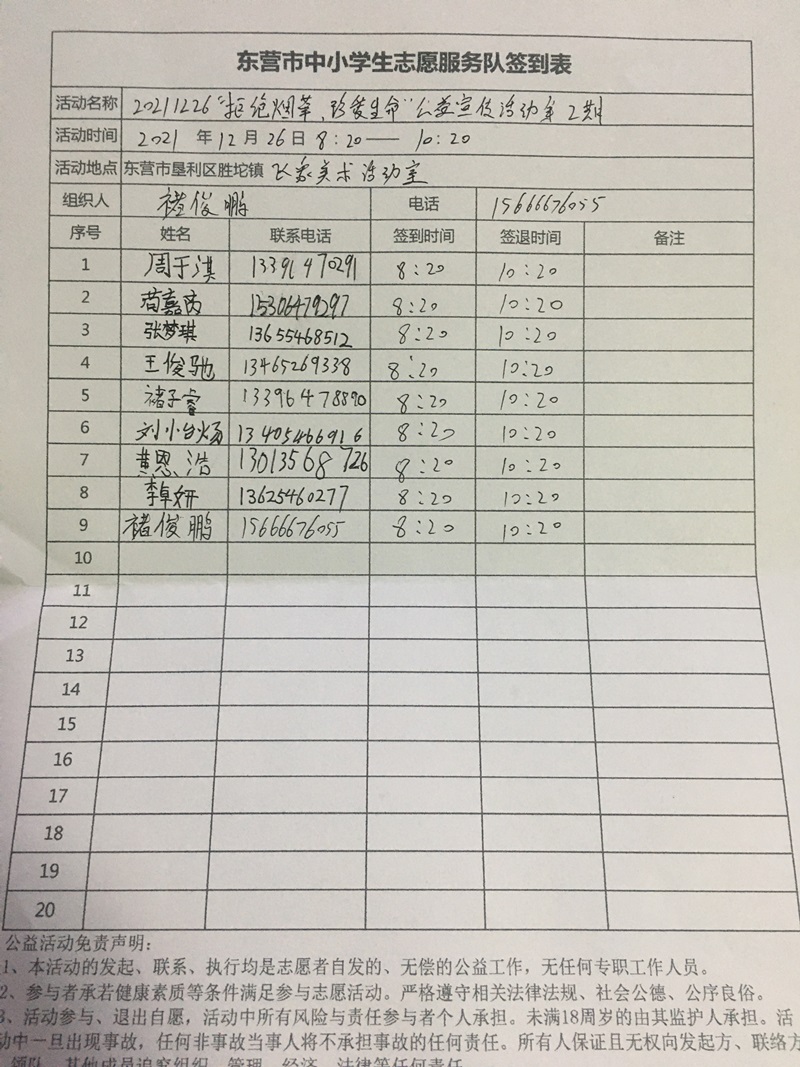 东营市中小学生志愿服务队签到表
活动名称 20211226“拒绝烟草、珍爱生命”公益宣传活动第2期
活动时间 2021 年 12 月 26 日 8:20—— 10:20
活动地点 东营市垦利区胜坨镇 飞象美术活动室
组织人 褚俊鹏 电话 15666676055
序号 姓名 联系电话 签到时间 签退时间 备注
1 周于淇 13391470291 8:20 10:20
2 苟嘉芮 15306479297 8:20 10:20
3 张梦琪 13655468512 8:20 10:20
4 王俊驰 13465269338 8:20 10:20
5 褚子睿 13396478890 8:20 10:20
6 刘小炀 13405466916 8:20 10:20
7 黄恩浩 13013568726 8:20 10:20
8 李卓妍 13625460277 8:20 10:20
9 褚俊鹏 15666676055 8:20 10:20
10
11
12
13
14
15
16
17
18
19
20
公益活动免责声明：
1、本活动的发起、联系、执行均是志愿者自发的、无偿的公益工作，无任何专职工作人员。
2、参与者承若健康素质等条件满足参与志愿活动。严格遵守相关法律法规、社会公德、公序良俗。
3、活动参与、退出自愿，活动中所有风险与责任参与者个人承担。未满18周岁的由其监护人承担。活
动中一旦出现事故，任何非事故当事人将不承担事故的任何责任。所有人保证且无权向发起方、联络方
领队、其他成员追究组织、管理、经济、法律等任何责任